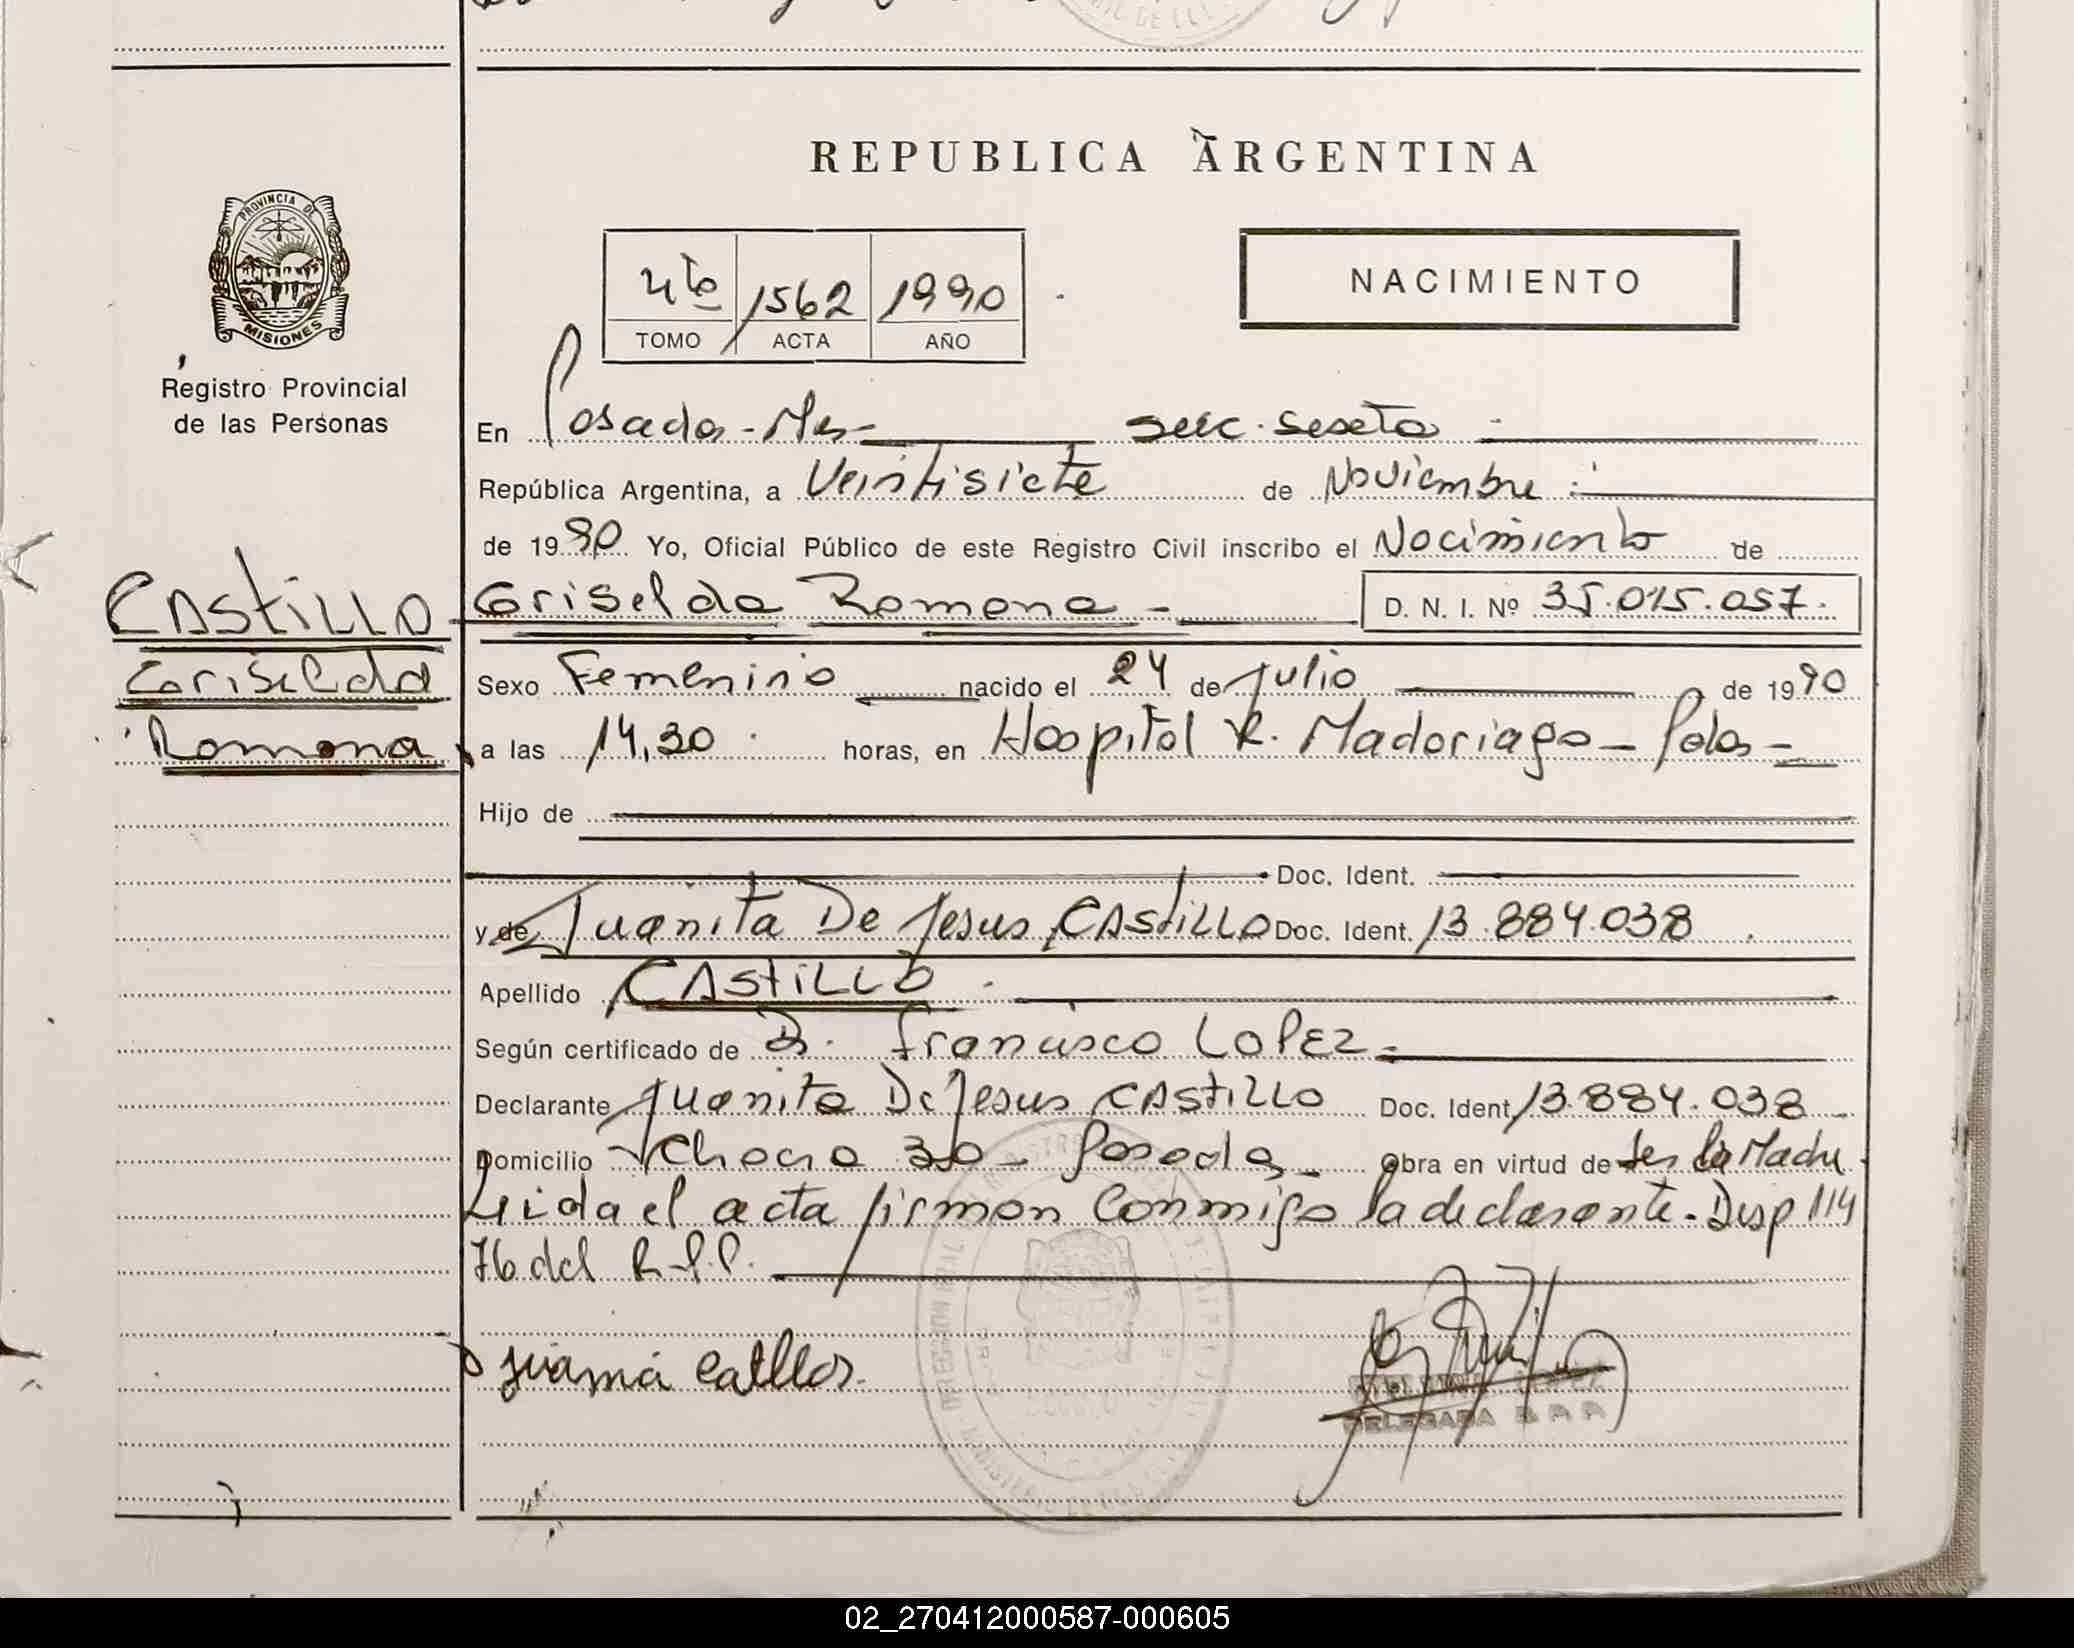 REPUBLICA ARGENTINA
PROVINCIA DE
MISIONES
Registro Provincial
de las Personas
4to 1562 1990
TOMO ACTA AÑO
NACIMIENTO
En Posadas - Mnes - secc. sexta
República Argentina, a Veintisiete de Noviembre
de 1990 Yo, Oficial Público de este Registro Civil inscribo el Nacimiento de
CASTILLO
Griselda
Ramona
Griselda Ramona - D. N. I. Nº 35.015.057.
Sexo Femenino nacido el 24 de Julio de 1990
a las 14,30 horas, en Hospital R. Madariaga - Pdas -
Hijo de
Doc. Ident.
y de Juanita De Jesus CASTILLO Doc. Ident. 13.884.038
Apellido CASTILLO
Según certificado de Dr. Francisco LOPEZ
Declarante Juanita De Jesus CASTILLO Doc. Ident. 13.884.038
Domicilio Chacra 30 - Posadas - Obra en virtud de ser la Madre
Leida el acta firman conmigo la declarante. Disp 114
76 del R.P.P.
DELEGADA R P P
02_270412000587-000605